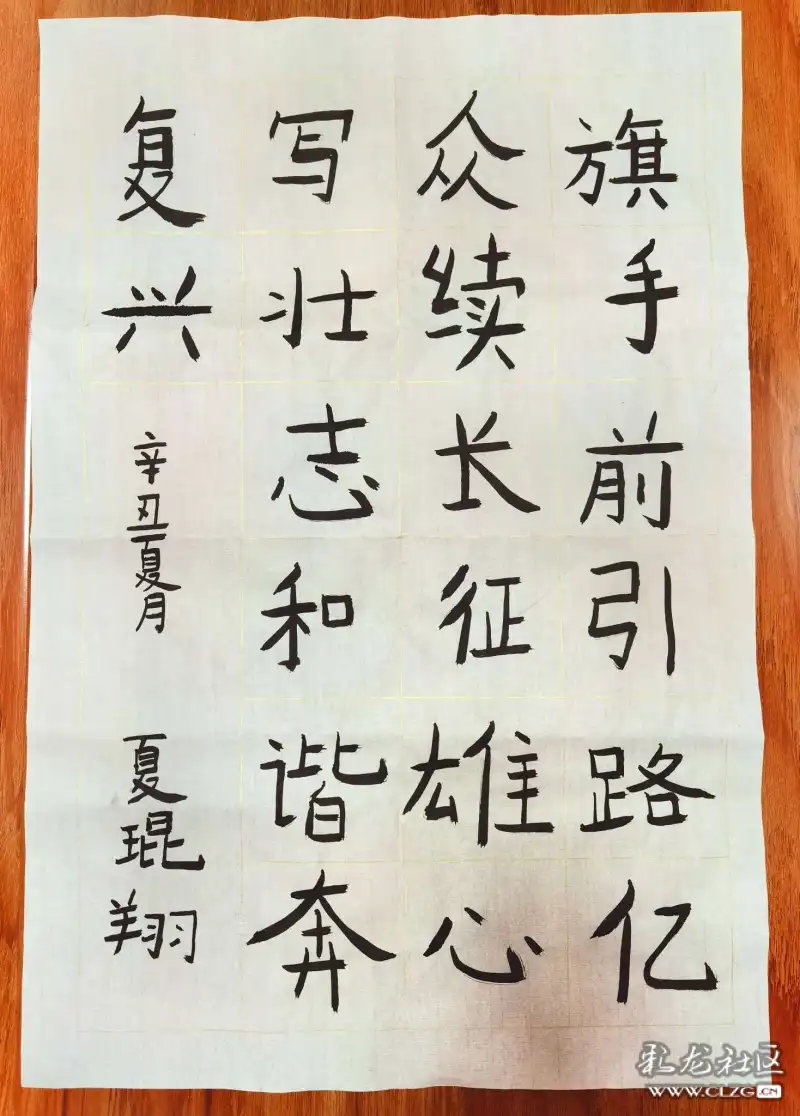 旗手前引路亿
众续长征雄心
写壮志和谐奔
复兴
辛丑夏月
夏琨翔
彩龙社区
WWW.CLZG.CN